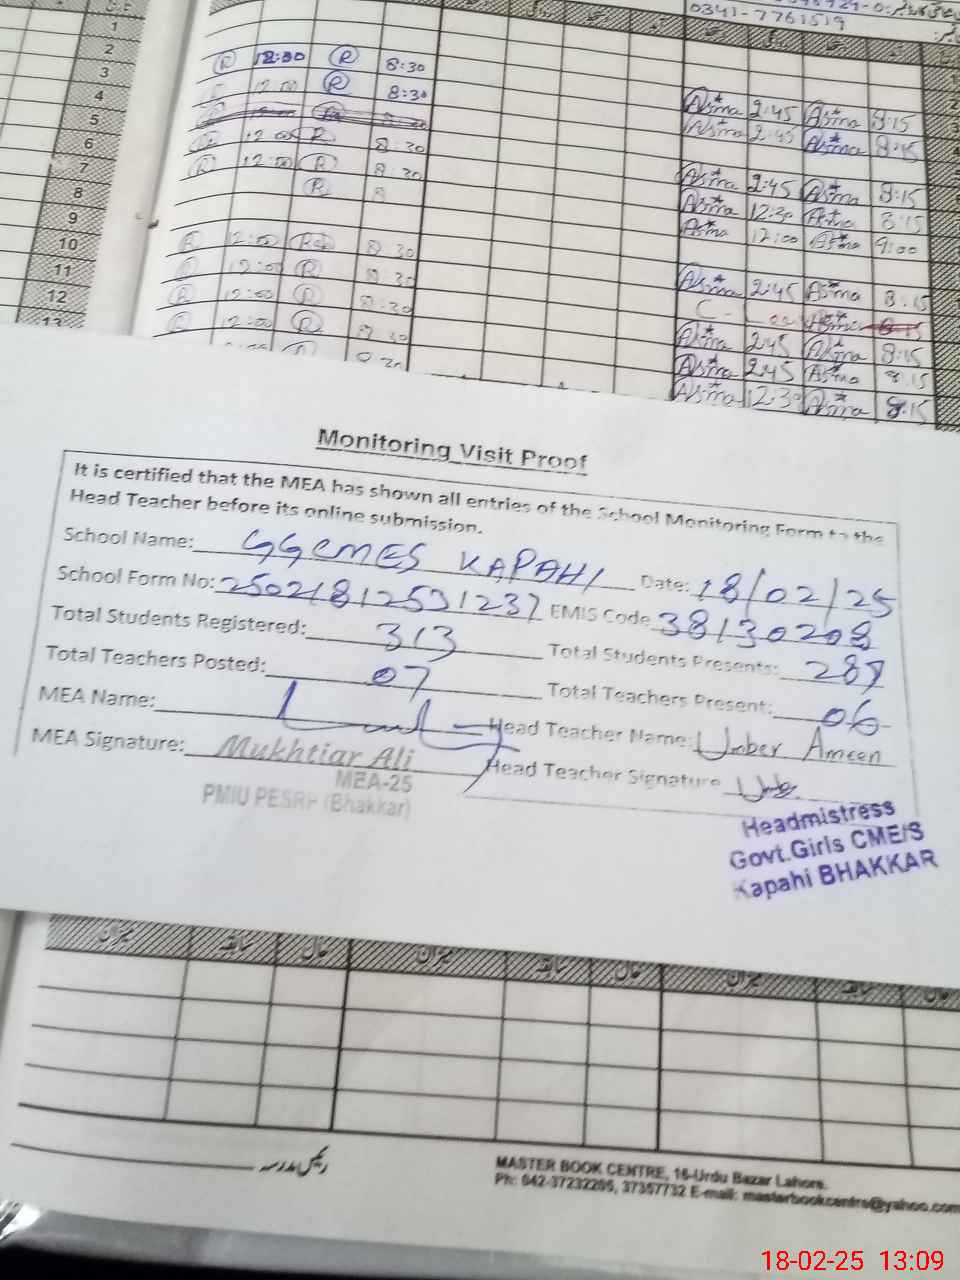 0341-7761519
1
2
3
4
5
6
7
8
9
10
11
12
13
R 12:00 R 8:30
12:00 R 8:30
12:00 R 8:30
R 12:00 R 8:30
R 8
12:00 8:30
12:00 R 8:30
R 12:00 R 8:30
R 12:00 R 8:30
Asma 2:45 Asma 8:15
Asma 2:45 Asma 8:15
Asma 2:45 Asma 8:15
Asma 12:30 Asma 8:15
Asma 12:00 Asma 9:00
Asma 2:45 Asma 8:15
Asma 2:45 Asma 8:15
Asma 2:45 Asma 8:15
Asma 12:30 Asma 8:15
Monitoring Visit Proof
It is certified that the MEA has shown all entries of the School Monitoring Form to the
Head Teacher before its online submission.
School Name: GGCMES KAPAHI Date: 18/02/25
School Form No: 25021812531237 EMIS Code 38130208
Total Students Registered: 313 Total Students Presents: 287
Total Teachers Posted: 07 Total Teachers Present: 06
MEA Name: Head Teacher Name: Umber Ameen
MEA Signature: Mukhtiar Ali Head Teacher Signature
MEA-25
PMIU PESRP (Bhakkar)
Headmistress
Govt.Girls CME/S
Kapahi BHAKKAR
میزان سابقہ حال میزان سابقہ حال میزان سابقہ حال
رئیس مدرسہ
MASTER BOOK CENTRE, 16-Urdu Bazar Lahore.
Ph: 042-37232295, 37357732 E-mail: masterbookcentre@yahoo.com
18-02-25 13:09